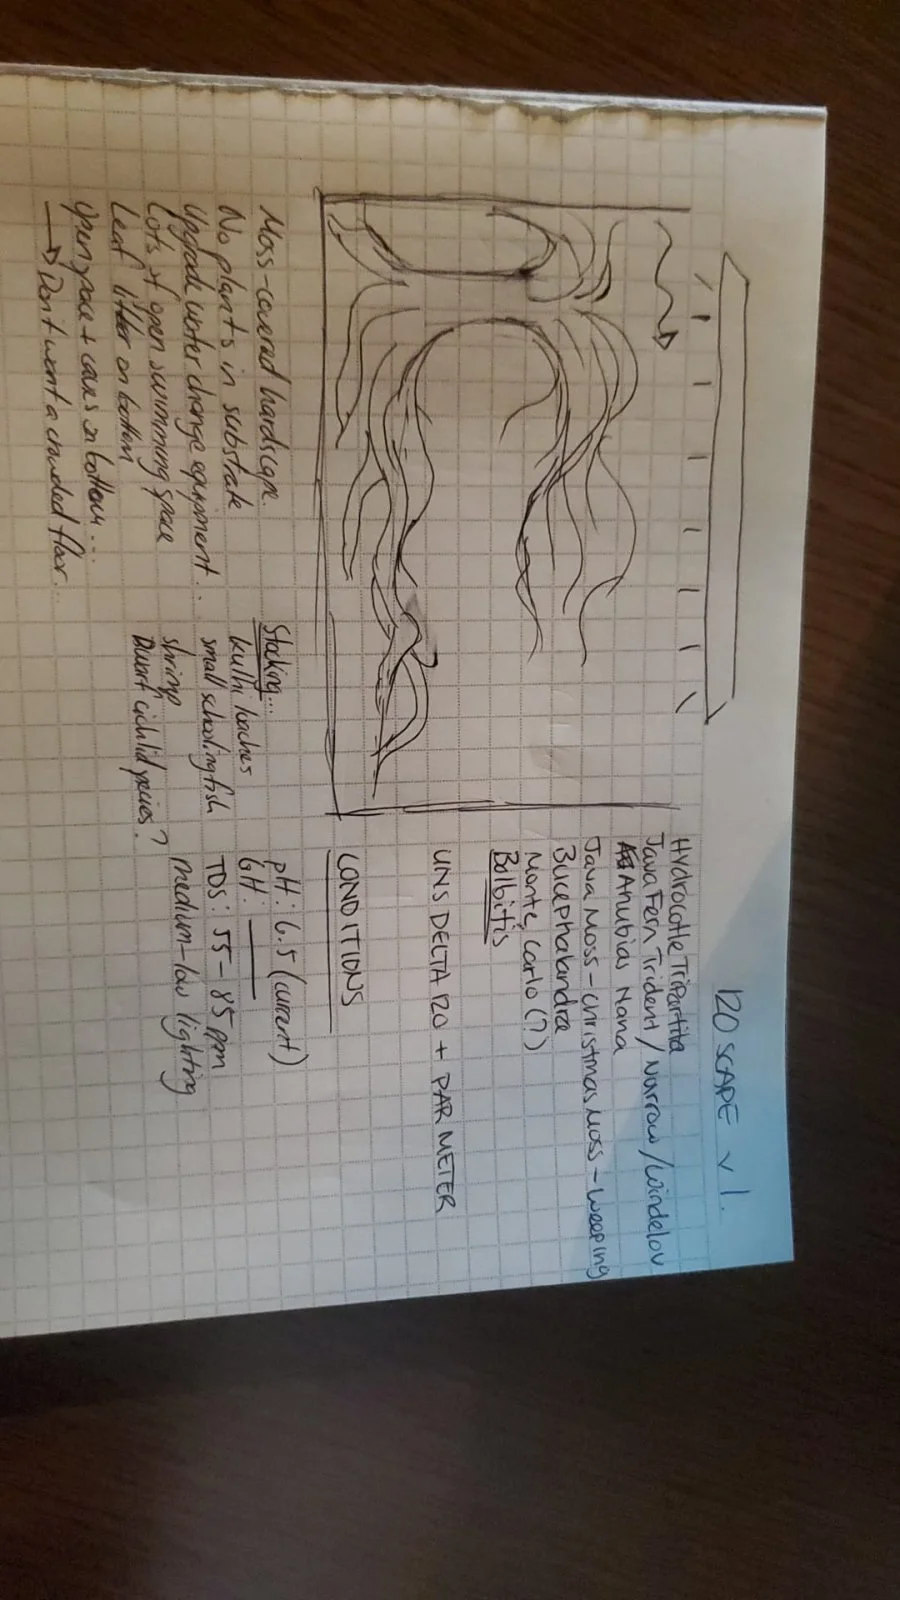 120 SCAPE v 1.
Hydrocotle Tripartita
Java Fern Trident / Narrow / Windelov
Anubias Nana
Java Moss - Christmas Moss - Weeping
Bucephalandra
Monte Carlo (?)
Bolbitis
UNS DELTA 120 + PAR METER
CONDITIONS
pH: 6.5 (current)
GH:
TDS: 55 - 85 ppm
medium-low lighting
Moss-covered hardscape.
No plants in substrate
Upgrade water change equipment..
Lots of open swimming space
Leaf litter on bottom
Open space + caves on bottom...
→ Don't want a crowded floor...
Stocking...
kulhi loaches
small schooling fish
shrimp
Dwarf cichlid species?